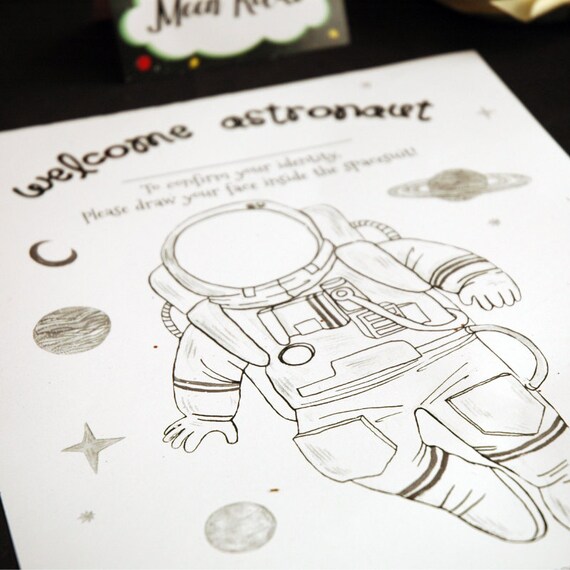 Moon
welcome astronaut
To confirm your identity,
Please draw your face inside the spacesuit!